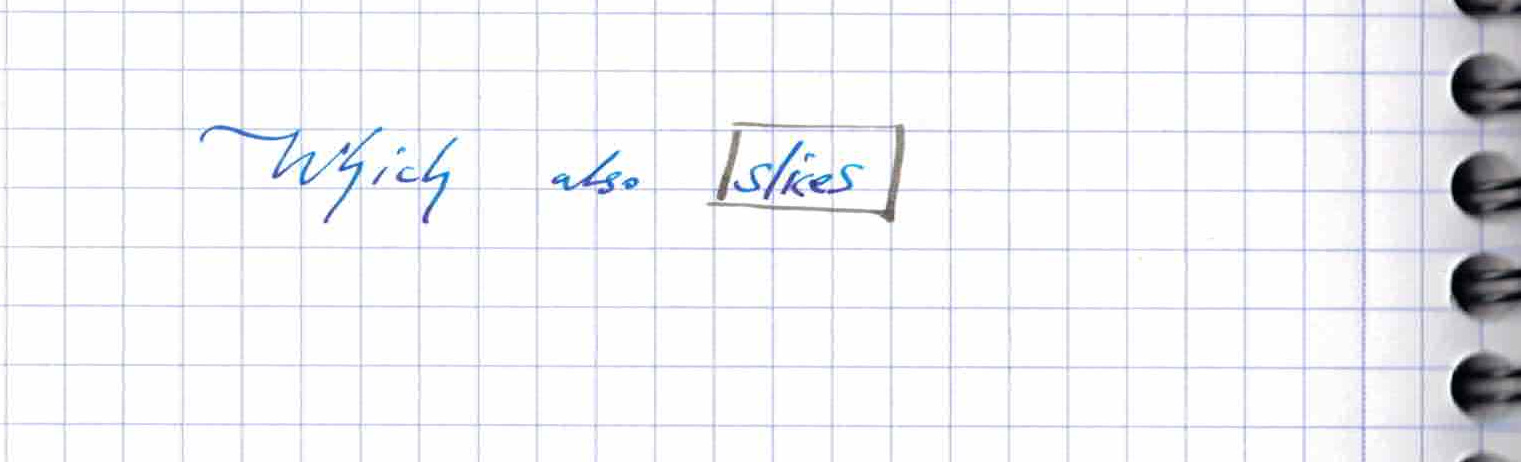 Which also slices